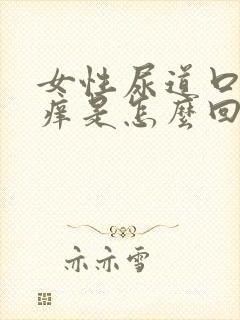 女性尿道口
痒是怎麼回
亦亦雪